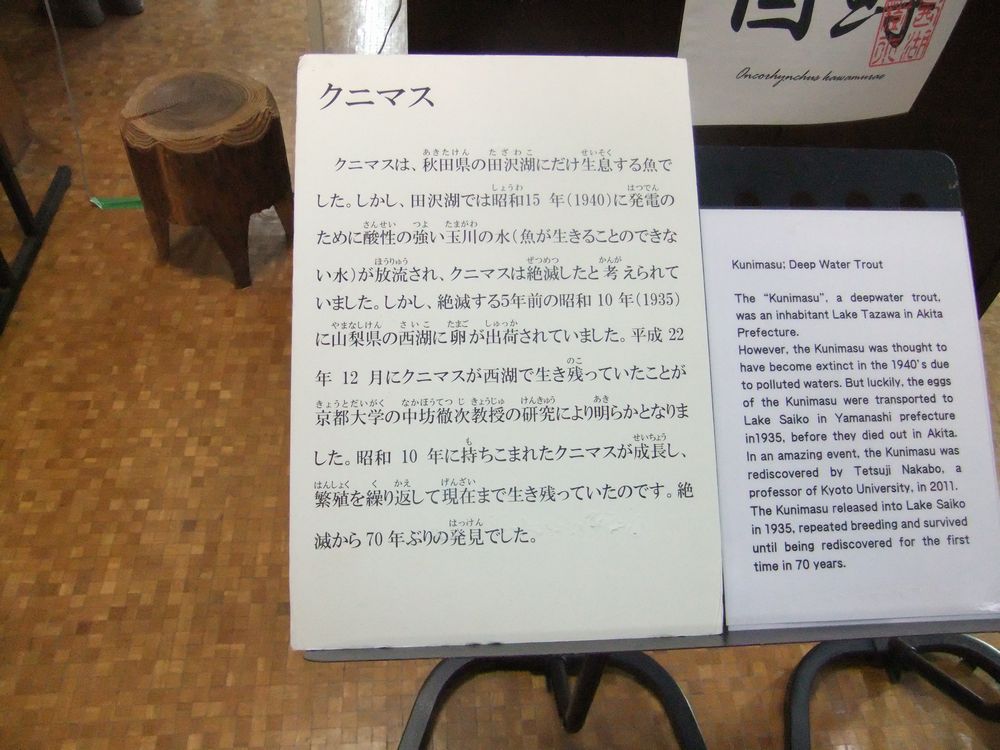 クニマス
クニマスは、秋田県の田沢湖にだけ生息する魚で
した。しかし、田沢湖では昭和15年(1940)に発電の
ために酸性の強い玉川の水(魚が生きることのできな
い水)が放流され、クニマスは絶滅したと考えられて
いました。しかし、絶滅する5年前の昭和10年(1935)
に山梨県の西湖に卵が出荷されていました。平成22
年12月にクニマスが西湖で生き残っていたことが
京都大学の中坊徹次教授の研究により明らかとなりま
した。昭和10年に持ちこまれたクニマスが成長し、
繁殖を繰り返して現在まで生き残っていたのです。絶
滅から70年ぶりの発見でした。
Oncorhynchus kawamurae
Kunimasu; Deep Water Trout
The "Kunimasu", a deepwater trout,
was an inhabitant Lake Tazawa in Akita
Prefecture.
However, the Kunimasu was thought to
have become extinct in the 1940's due
to polluted waters. But luckily, the eggs
of the Kunimasu were transported to
Lake Saiko in Yamanashi prefecture
in1935, before they died out in Akita.
In an amazing event, the Kunimasu was
rediscovered by Tetsuji Nakabo, a
professor of Kyoto University, in 2011.
The Kunimasu released into Lake Saiko
in 1935, repeated breeding and survived
until being rediscovered for the first
time in 70 years.